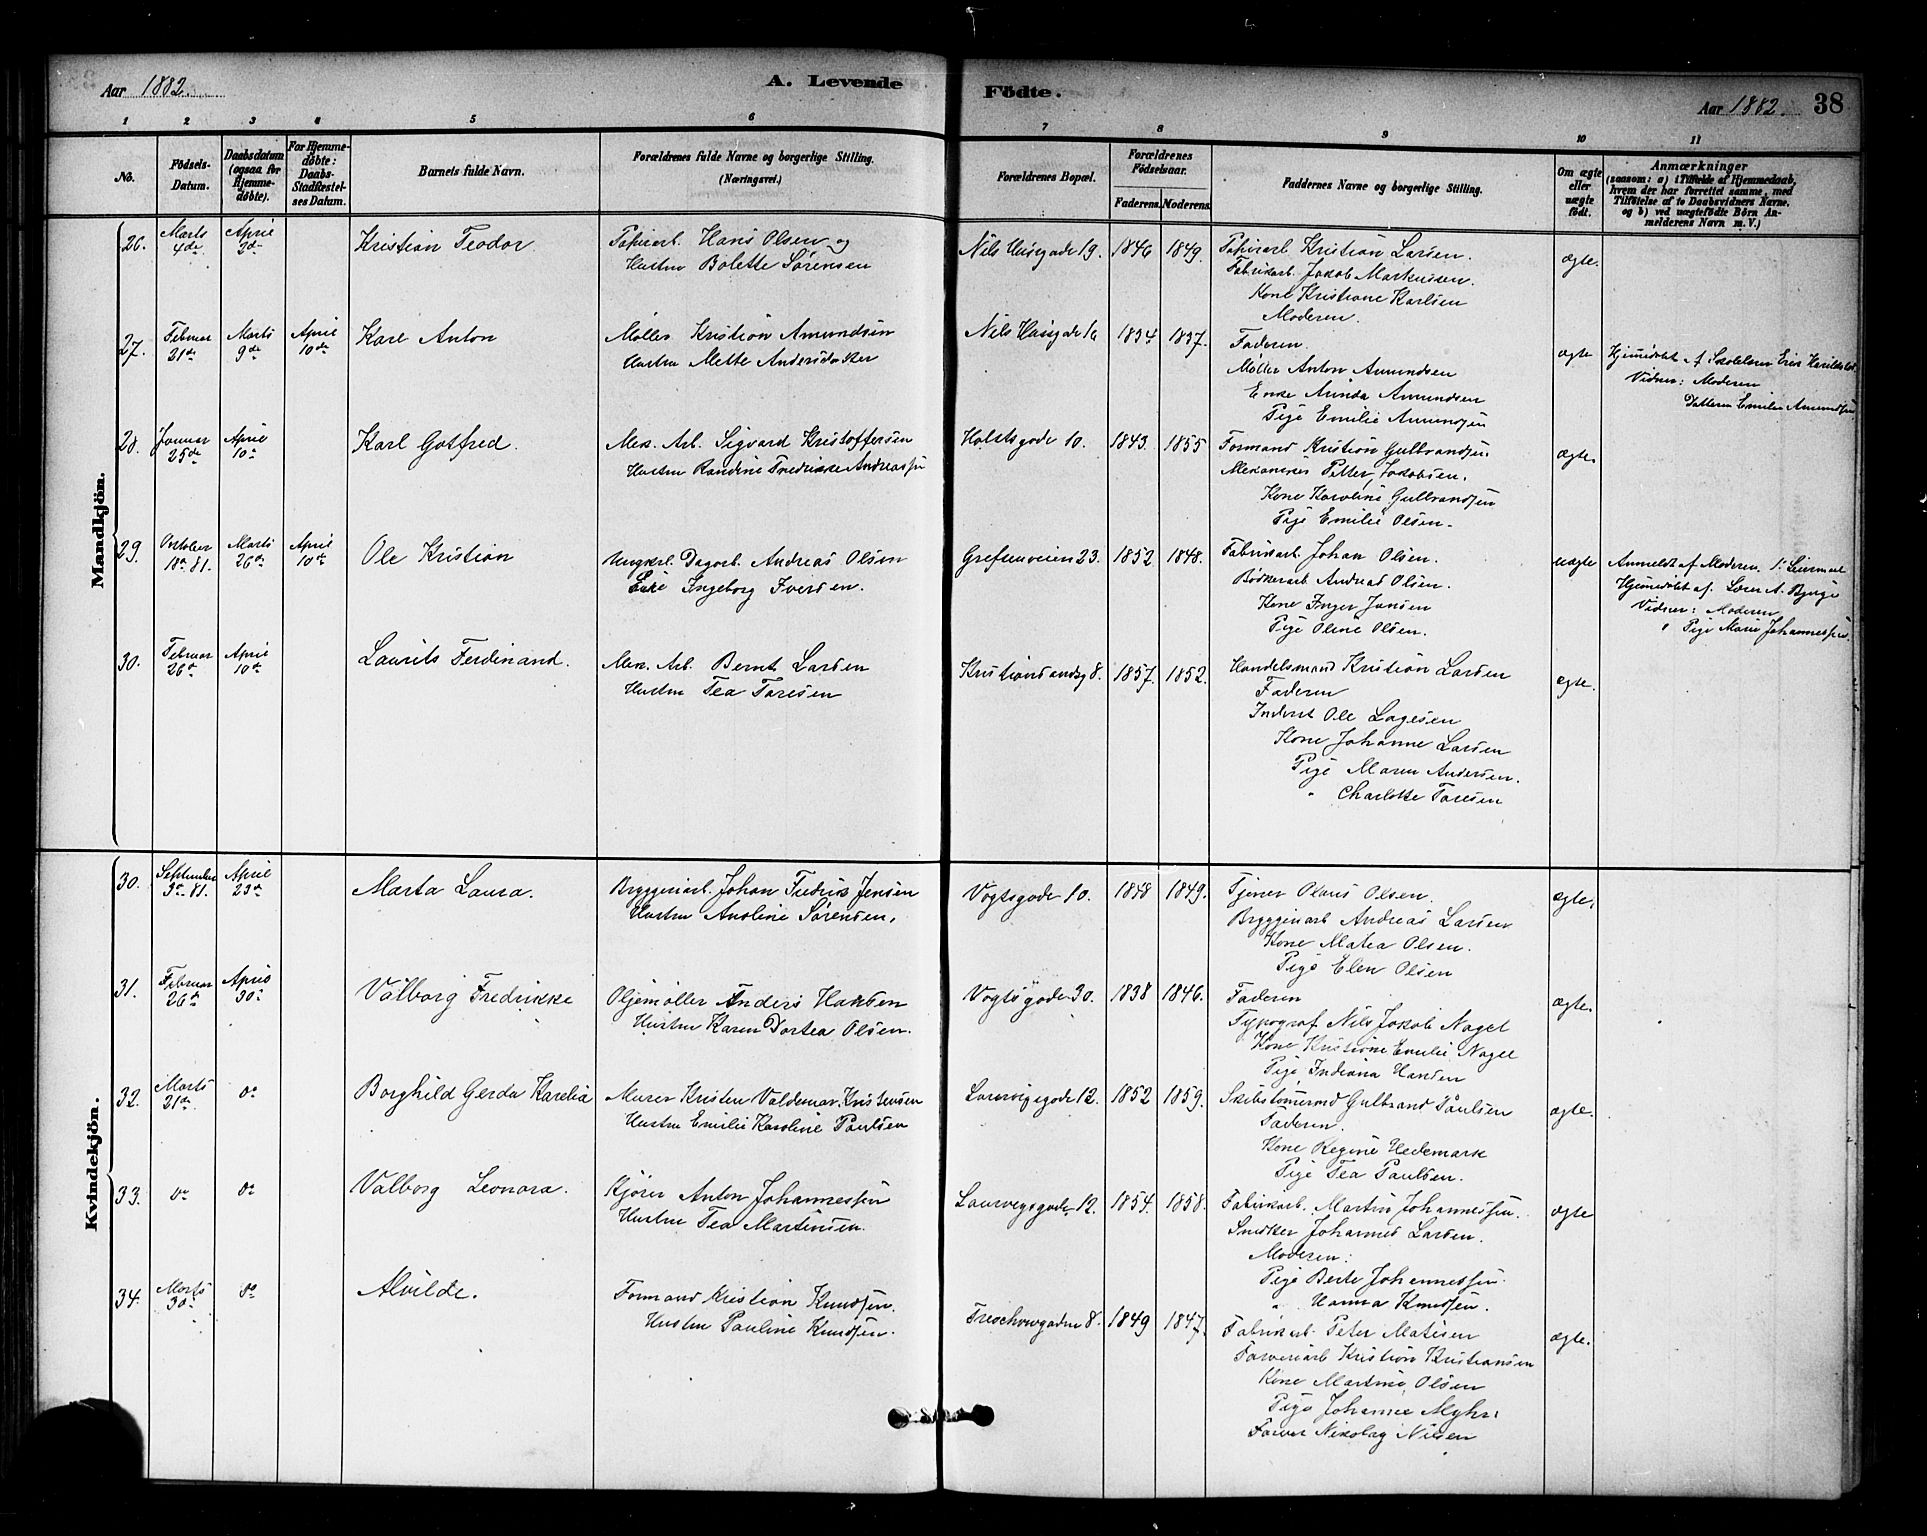 Aar 1882.
A. Levende
Födte.
Aar 1882. 38
1 2 3 4 5 6 7 8 9 10 11
No.
Födsels-Datum.
Daabsdatum (ogsaa for Hjemmedøbte).
For Hjemmedøbte: Daabs-Stadfæstelses Datum.
Barnets fulde Navn.
Forældrenes fulde Navne og borgerlige Stilling.
(Næringsvei.)
Forældrenes Bopæl.
Forældrenes Fødselsaar.
Faderens. Moderens.
Faddernes Navne og borgerlige Stilling.
Om ægte eller uægte født.
Anmærkninger
(saasom: a) i Tilfælde af Hjemmedaab,
hvem der har forrettet samme, med
Tilføielse af to Daabsvidners Navne.
og b) ved uægtefødte Børn An-
melderens Navn m. V.)
Mandkjön.
26. Marts 4de April 2den Kristian Teodor Papirarb. Hans Olsen og Nils Huusgade 19. 1846 1849. Papirarb. Kristian Larsen. ægte.
Hustru Bolette Sørensen Fabrikarb. Jakob Markussen.
Kone Kristiane Karlsen
Moderen.
27. Februar 21de Marts 9de April 10de Karl Anton Møller Kristian Amundsen Nils Huusgade 16 1834 1837. Faderen. ægte Hjemmedøbt af
Hustru Mette Andersdatter Møller Anton Amundsen Vidner: Moderen
Enke Arinda Amundsen Datteren Emilie Amundsen
Pige Emilie Amundsen
28. Januar 25de April 10de Karl Gotfred. Mek. Arb. Sigvard Kristoffersen Holstsgade 10. 1843 1855 Formand Kristian Gulbrandsen ægte.
Hustru Randine Fredrikke Andreassen Mekaniker Petter Jakobsen.
Kone Karoline Gulbrandsen
Pige Emilie Olsen.
29. Oktober 18de 81. Marts 26de April 10de Ole Kristian Ungkarl Dagarb. Andreas Olsen Grefsenveien 23. 1852 1848. Fabrikarb. Johan Olsen. uægte Anmeldt af Moderen
Pige Ingeborg Iversen. Bødkerarb Andreas Olsen. Hjemmedøbt af Lærer A. Bjerge
Kone Inger Jansen Vidner: Moderen
Pige Oline Olsen. " Pige Marie Johannessen.
30. Februar 26de April 10de Laurits Ferdinand. Mek. Arb. Bernt Larsen Kristiansandsg 8. 1857. 1852. Handelsmand Kristian Larsen ægte.
Hustru Tea Toresen Faderen
Inderst Ole Lagesen
Kone Johanne Larsen
Pige Maren Andersen.
" Charlotte Toresen
Kvindekjön.
30. September 3de 81. April 23de Marta Laura. Bryggeriarb. Johan Fredrik Jensen Vogtsgade 10. 1848 1849. Tjener Olaus Olsen. ægte.
Hustru Anoline Sørensen. Bryggeriarb Andreas Larsen
Kone Matea Olsen.
Pige Elen Olsen
31. Februar 26de April 30de Valborg Fredrikke Oljemøller Anders Hansen Vogtsgade 30. 1838 1846. Faderen ægte.
Hustru Karen Dortea Olsen. Typograf Nils Jakob Nagel
Kone Kristiane Emilie Nagel
Pige Indiana Hansen
32. Marts 21de do Borghild Gerda Karelia Murer Kristen Valdemar Kristensen Laurvigsgade 12. 1852 1859. Skibstømmermd Gulbrand Paulsen ægte.
Hustru Emilie Karoline Paulsen Faderen.
Kone Regine Hedemark
Pige Tea Paulsen.
33. do do Valborg Leonora. Kjører Anton Johannessen Laurvigsgade 12. 1854. 1858. Fabrikarb. Martin Johannessen. ægte
Hustru Tea Martinsen. Snedker Johannes Larsen.
Moderen.
Pige Berte Johannessen
" Hanna Knudsen.
34. Marts 30de do Alvilde. Formand Kristian Knudsen. Treschowsgaden 8. 1849 1847. Fabrikarb. Peter Matisen ægte.
Hustru Pauline Knudsen. Farveriarb Kristian Kristiansen
Kone Martine Olsen
Pige Johanne Myhre
Farver Nikolay Nilsen